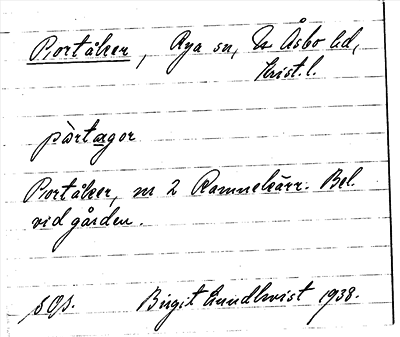 Portåker, Rya sn, N Åsbo hd,
Krist. l.
pòrtagor
Portåker, nr 2 Ramnekärr. Bel.
vid gården.
Birgit Lundkvist 1938.